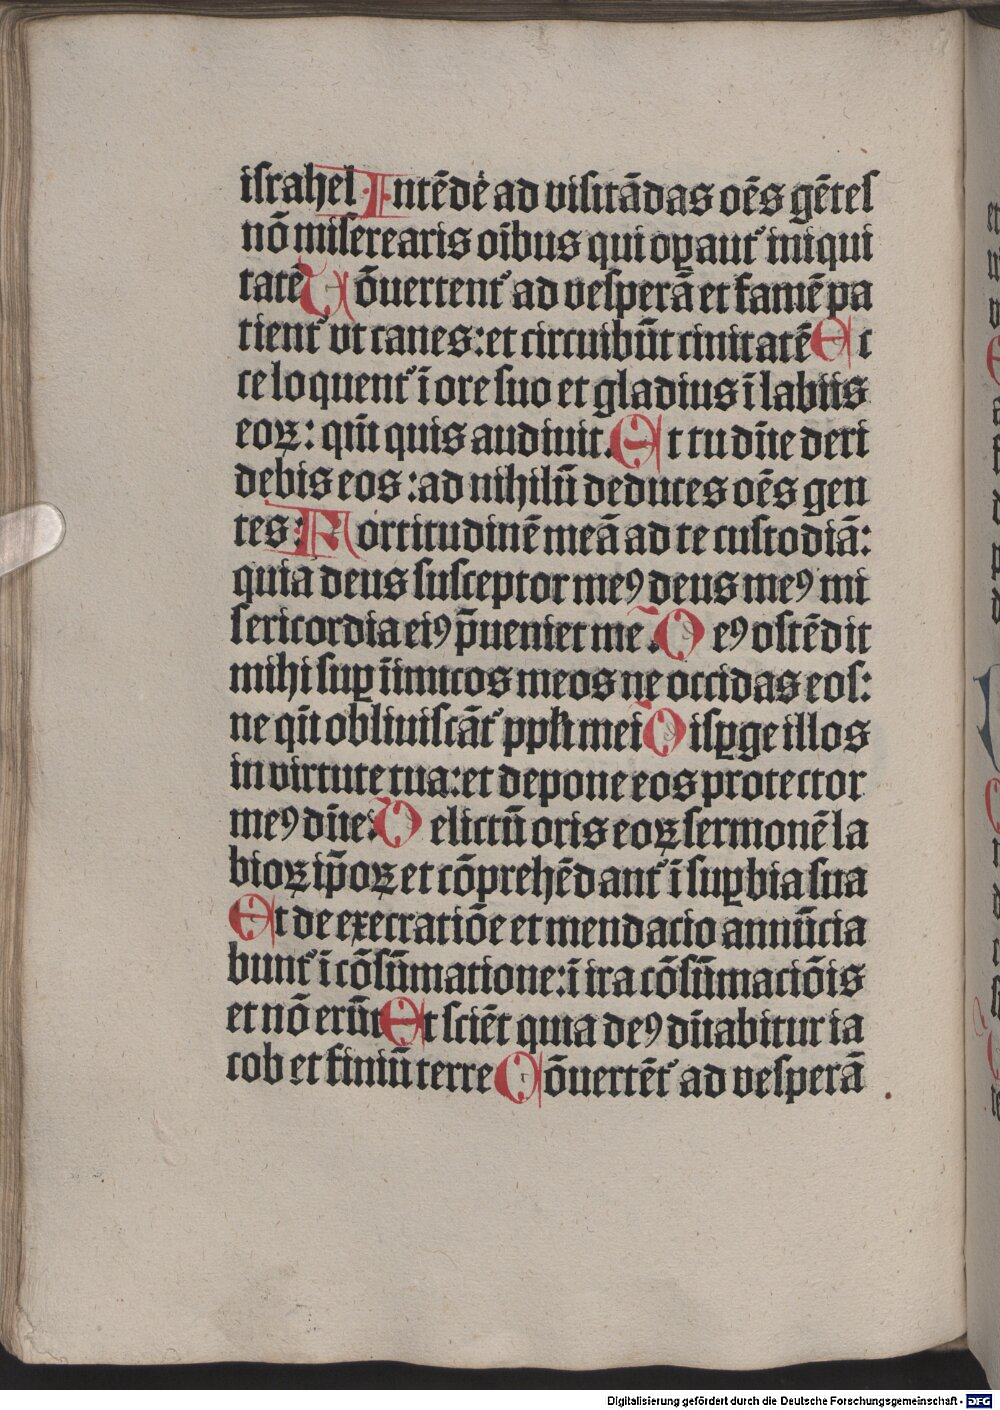 israhel Intēde ad visitādas oēs gētes
nō miserearis oībus qui oꝑant᷑ iniqui
tatē Cōuertent᷑ ad vesperā et famē pa
tient᷑ vt canes: et circuibūt ciuitatē Ec
ce loquent᷑ ī ore suo et gladius ī labiis
eoꝝ: qm̄ quis audiuit. Et tu dn̄e deri
debis eos: ad nihilū deduces oēs gen
tes: Fortitudinē meā ad te custodiā:
quia deus susceptor meꝰ deus meꝰ mi
sericordia eiꝰ p̄ueniet me. Deꝰ ostēdit
mihi suꝑ inimicos meos ne occidas eos:
ne qn̄ obliuiscāt᷑ ppl̄i mei Disꝑge illos
in virtute tua: et depone eos protector
meꝰ dn̄e: Delictū oris eoꝝ sermonē la
bioꝝ ip̄oꝝ et cōprehēdant᷑ ī suꝑbia sua
Et de execratiōe et mendacio annūcia
bunt᷑ ī cōsūmatione: ī ira cōsūmaciōis
et nō erūt Et sciēt quia deꝰ dn̄abitur ia
cob et finiū terre Cōuertēt᷑ ad vesperā
Digitalisierung gefördert durch die Deutsche Forschungsgemeinschaft - DFG